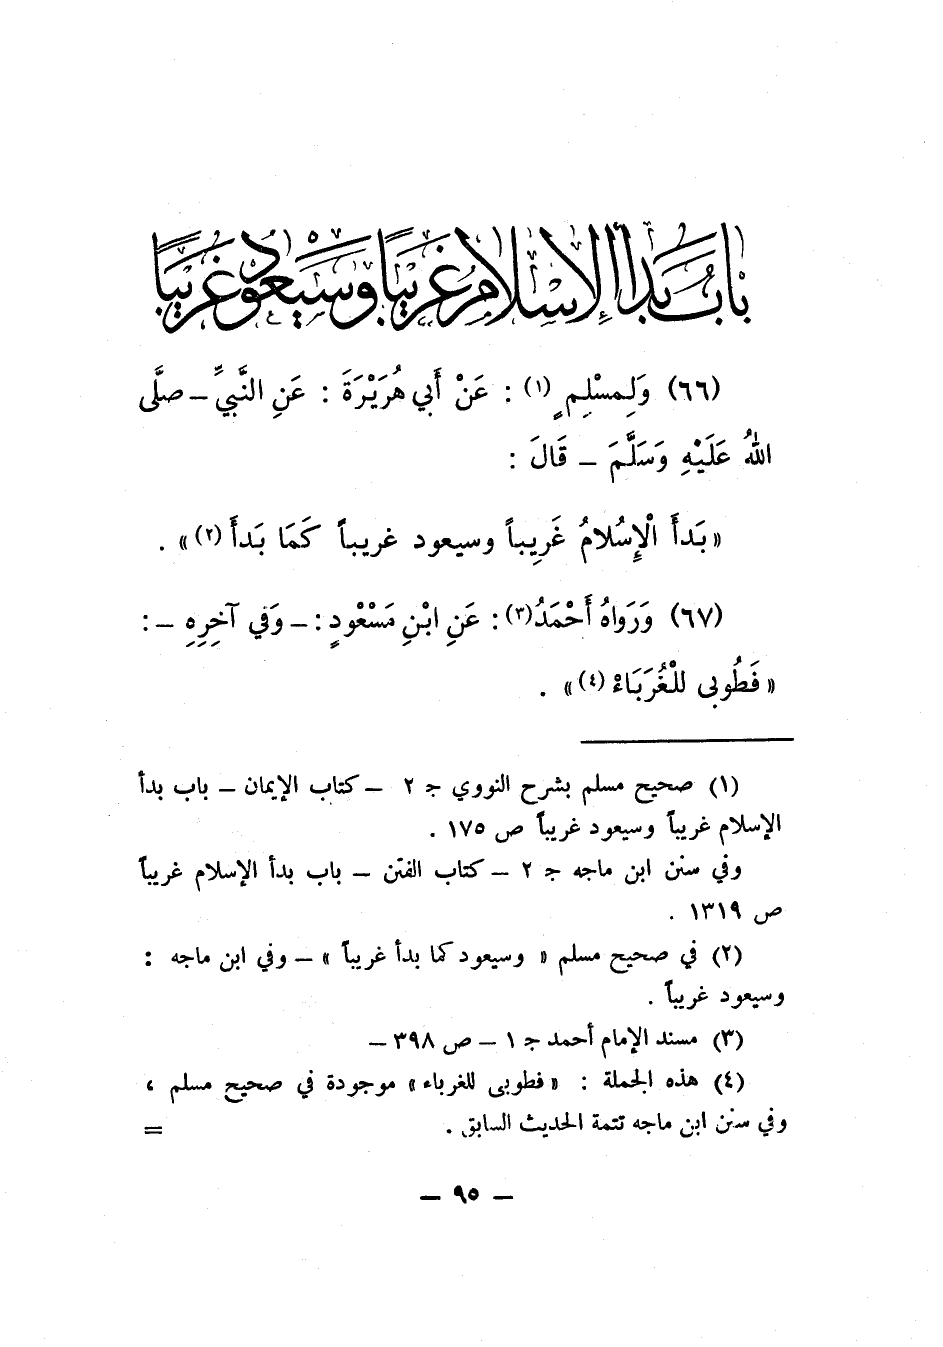 باب بدأ الإسلام غريبا وسيعود غريبا
(٦٦) وَلِمسْلِمٍ (١) : عَنْ أَبي هُرَيْرَةَ : عَنِ النَّبيِّ ــ صلَّى
اللهُ عَلَيْهِ وَسَلَّمَ ــ قَالَ :
« بَدأَ الْإِسُلامُ غَرِيباً وسيعود غريباً كَمَا بَدأَ (٢) » .
(٦٧) وَرَوَاهُ أَحْمَدُ (٣) : عَنِ ابْنِ مَسْعُودٍ : ــ وَفي آخِرِهِ ــ :
« فَطُوبى للْغُرَبَاءْ (٤) » .
(١) صحيح مسلم بشرح النووي جـ ٢ ــ كتاب الإيمان ــ باب بدأ
الإسلام غريباً وسيعود غريباً ص ١٧٥ .
وفي سنن ابن ماجه جـ ٢ ــ كتاب الفتن ــ باب بدأ الإسلام غريباً
ص ١٣١٩ .
(٢) في صحيح مسلم « وسيعود كما بدأ غريباً » ــ وفي ابن ماجه :
وسيعود غريباً .
(٣) مسند الإمام أحمد جـ ١ ــ ص ٣٩٨ ــ
(٤) هذه الجملة : « فطوبى للغرباء » موجودة في صحيح مسلم ،
وفي سنن ابن ماجه تتمة الحديث السابق . =
ــ ٩٥ ــ